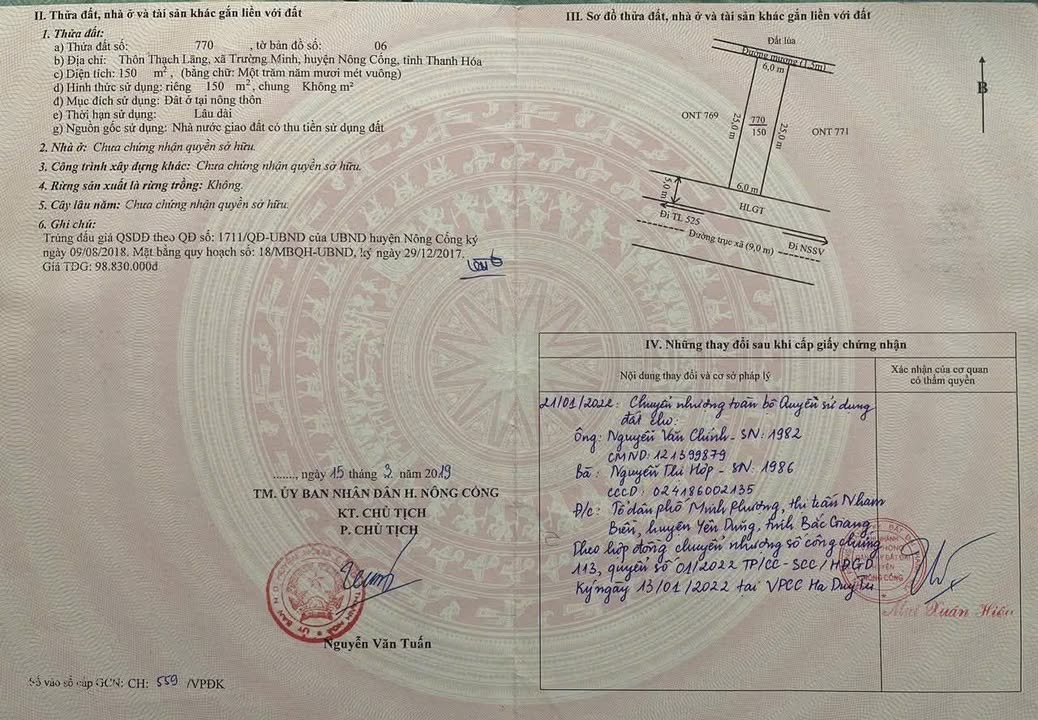 II. Thửa đất, nhà ở và tài sản khác gắn liền với đất
1. Thửa đất:
a) Thửa đất số: 770 , tờ bản đồ số: 06
b) Địa chỉ: Thôn Thạch Lãng, xã Trường Minh, huyện Nông Cống, tỉnh Thanh Hóa
c) Diện tích: 150 m², (bằng chữ: Một trăm năm mươi mét vuông)
d) Hình thức sử dụng: riêng 150 m², chung Không m²
đ) Mục đích sử dụng: Đất ở tại nông thôn
e) Thời hạn sử dụng: Lâu dài
g) Nguồn gốc sử dụng: Nhà nước giao đất có thu tiền sử dụng đất
2. Nhà ở: Chưa chứng nhận quyền sở hữu.
3. Công trình xây dựng khác: Chưa chứng nhận quyền sở hữu.
4. Rừng sản xuất là rừng trồng: Không.
5. Cây lâu năm: Chưa chứng nhận quyền sở hữu.
6. Ghi chú:
Trúng đấu giá QSDĐ theo QĐ số: 1711/QĐ-UBND của UBND huyện Nông Cống ký
ngày 09/08/2018. Mặt bằng quy hoạch số: 18/MBQH-UBND, ký ngày 29/12/2017.
Giá TĐG: 98.830.000đ
......., ngày 15 tháng 3 năm 2019
TM. ỦY BAN NHÂN DÂN H. NÔNG CỐNG
KT. CHỦ TỊCH
P. CHỦ TỊCH
Nguyễn Văn Tuấn
Số vào sổ cấp GCN: CH: 559 /VPĐK
III. Sơ đồ thửa đất, nhà ở và tài sản khác gắn liền với đất
Đất lúa
Đường mương (1,5m)
6,0 m
B
ONT 769
25,0 m
770
150
25,0 m
ONT 771
6,0 m
5,0 m
HLGT
Đi TL 525
Đường trục xã (9,0 m)
Đi NSSV
IV. Những thay đổi sau khi cấp giấy chứng nhận
Nội dung thay đổi và cơ sở pháp lý
Xác nhận của cơ quan
có thẩm quyền
21/01/2022: Chuyển nhượng toàn bộ Quyền sử dụng
đất cho:
Ông: Nguyễn Văn Chính - SN: 1982
CMND: 121399879
Bà: Nguyễn Thị Hợp - SN: 1986
CCCD: 024186002135
Đ/c: Tổ dân phố Minh Phượng, thị trấn Nham
Biền, huyện Yên Dũng, tỉnh Bắc Giang
Theo hợp đồng chuyển nhượng số công chứng
113, quyển số 01/2022 TP/CC-SCC/HĐGD
Ký ngày 13/01/2022 tại VPCC Hà Duy
Mai Xuân Hiệu